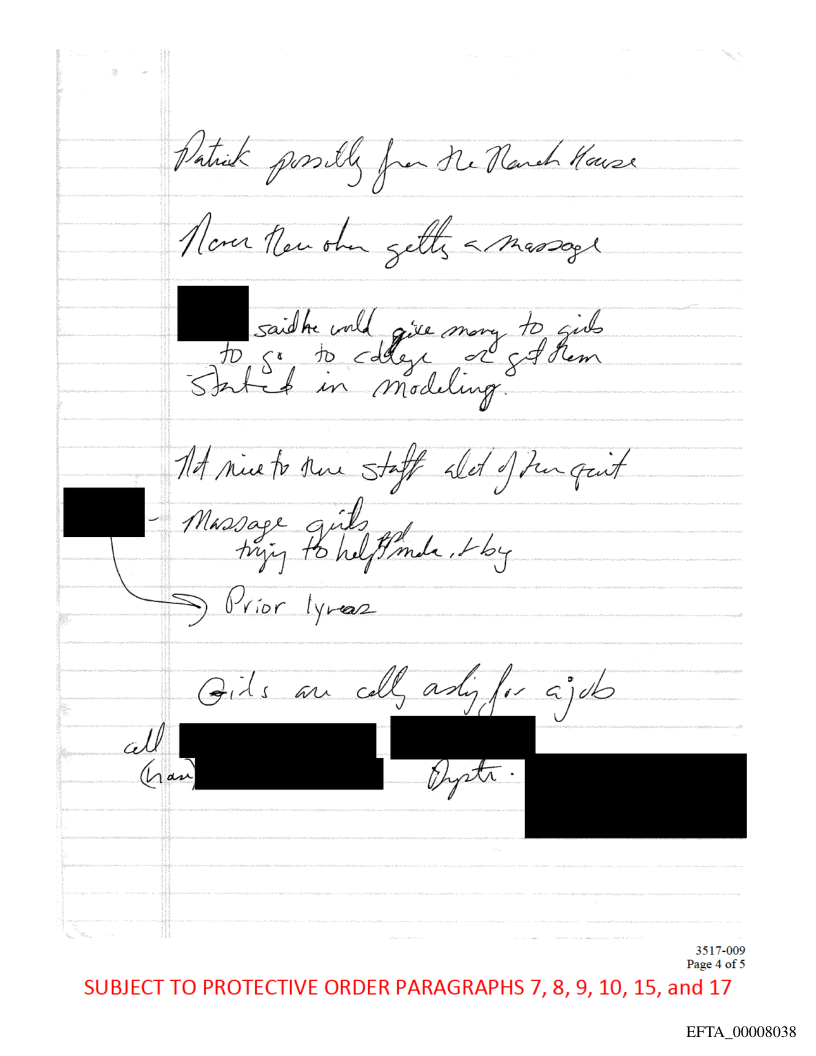 Patrick possibly from the Ranch House
Never then other getts a massage
said he would give money to girls
to go to college or get them
started in modeling.
Not nice to there staff alot of them quit
- Massage girls
trying to help
Prior 1 year
Girls are calls asking for a job
cell
3517-009
Page 4 of 5
SUBJECT TO PROTECTIVE ORDER PARAGRAPHS 7, 8, 9, 10, 15, and 17
EFTA_00008038